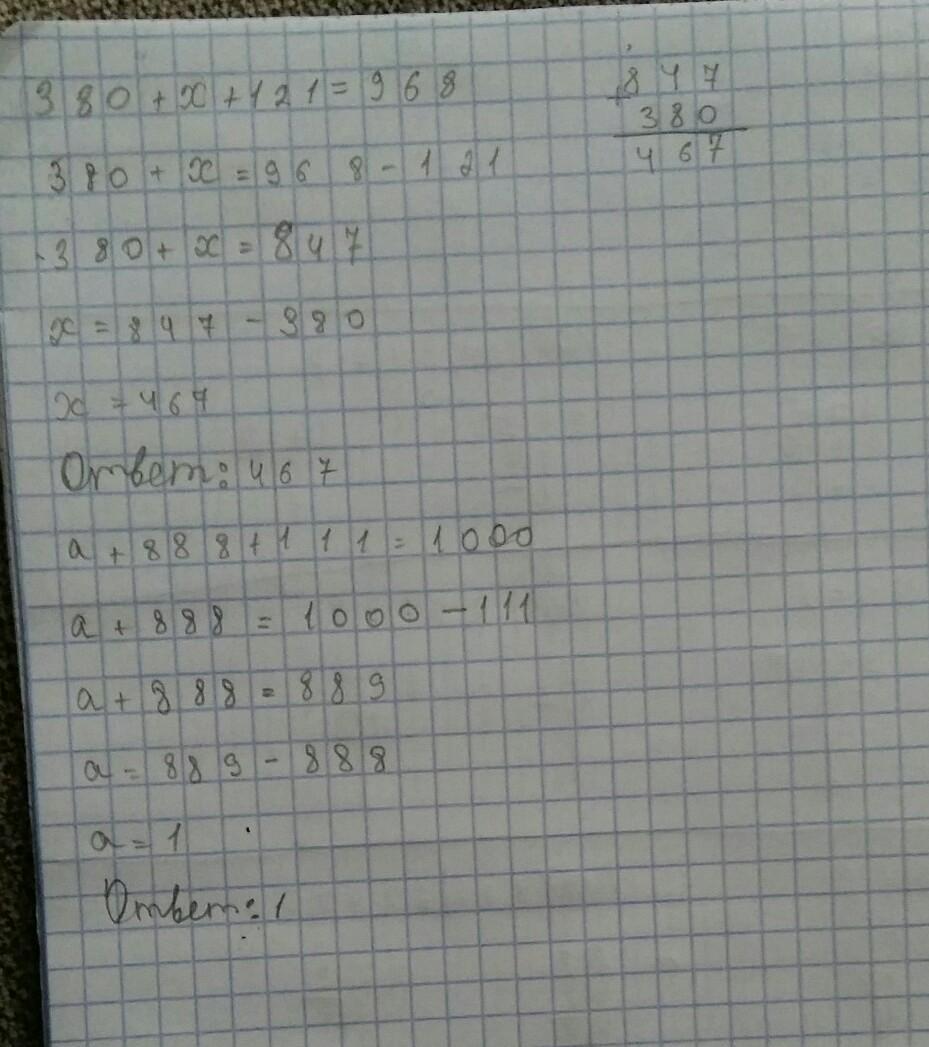 380+x+121=968
380+x=968-121
380+x=847
x=847-380
x=467
Ответ: 467
a+888+111=1000
a+888=1000-111
a+888=889
a=889-888
a=1
Ответ: 1
847
380
467